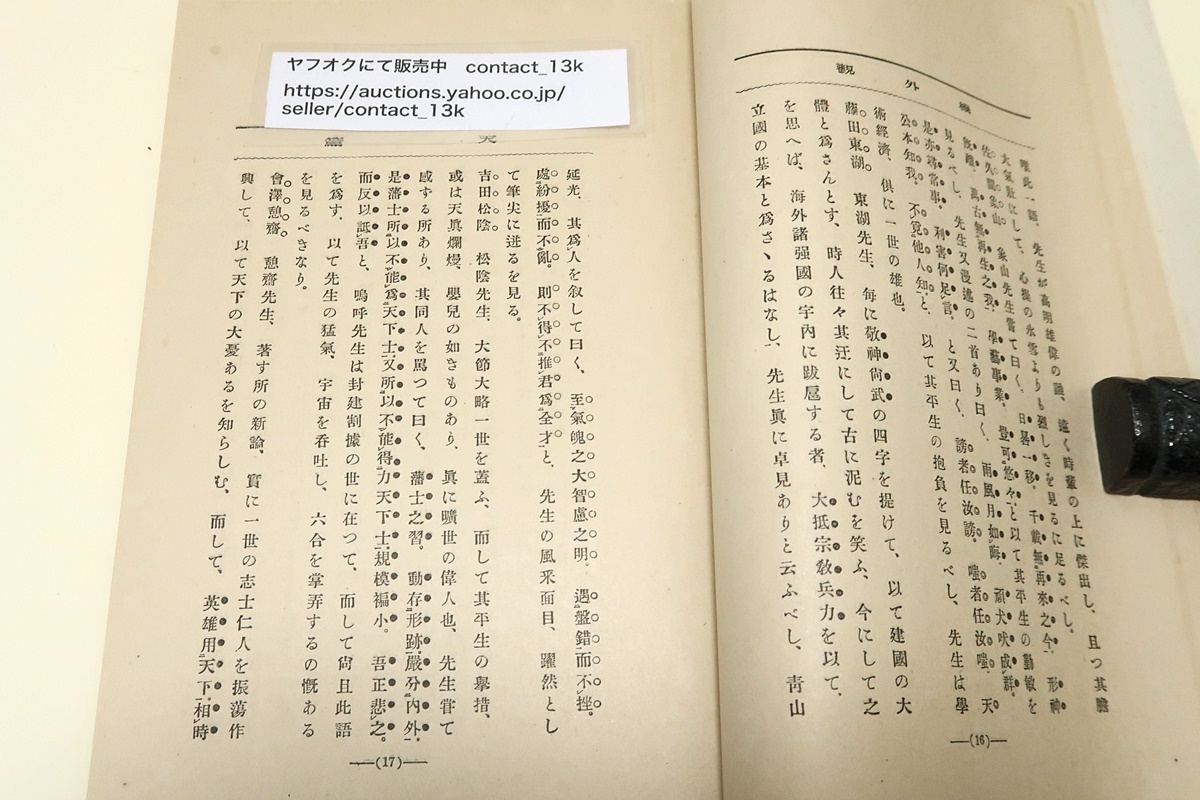 機外觀
雖此一語、先生が高明雄偉の識、遠く時輩の上に傑出し、且つ其膽
大氣壯にして、心操の氷雪よりも烈しきを見るに足るべし。
佐久間象山 象山先生嘗て曰く、日晷一移、千載無再來之今、形神
既離、萬古無再生之我、學藝事業、豈可悠々と以て其平生の勤敏を
見るべし、先生又漫述の二首あり曰く、雨風月如晦、頑犬吠成群。
是亦尋常事、利害何足言、と又曰く、謗者任汝謗。嗤者任汝嗤。天
公本知我、不覓他人知と、以て其平生の抱負を見るべし、先生は學
術經濟、俱に一世の雄也。
藤田東湖。東湖先生、每に敬神尙武の四字を提けて、以て建國の大
體と爲さんとす、時人往々其迂にして古に泥むを笑ふ、今にして之
を思へば、海外諸强國の宇內に跋扈する者、大抵宗敎兵力を以て、
立國の基本と爲さゝるはなし、先生眞に卓見ありと云ふべし、靑山
(16)
ヤフオクにて販売中 contact_13k
https://auctions.yahoo.co.jp/
seller/contact_13k
天籟
延光、其爲人を叙して曰く、至氣魄之大智慮之明。遇盤錯而不挫。
處紛擾而不亂。則不得不推君爲全才と、先生の風釆面目、躍然とし
て筆尖に迸るを見る。
吉田松陰 松陰先生、大節大略一世を蓋ふ、而して其平生の擧措、
或は天眞爛熳、嬰兒の如きものあり、眞に曠世の偉人也、先生嘗て
感する所あり、其同人を罵つて曰く、藩士之習。動存形跡、嚴分內外、
是藩士所以不能爲天下士、又所以不能得力天下士、規模褊小。吾正悲之。
而反以詆吾と、嗚呼先生は封建割據の世に在つて、而して尙且此語
を爲す、以て先生の猛氣、宇宙を呑吐し、六合を掌弄するの慨ある
を見るべきなり。
會澤憩齋。憩齋先生、著す所の新論、實に一世の志士仁人を振蕩作
興して、以て天下の大憂あるを知らしむ、而して、英雄用天下、相時
(17)